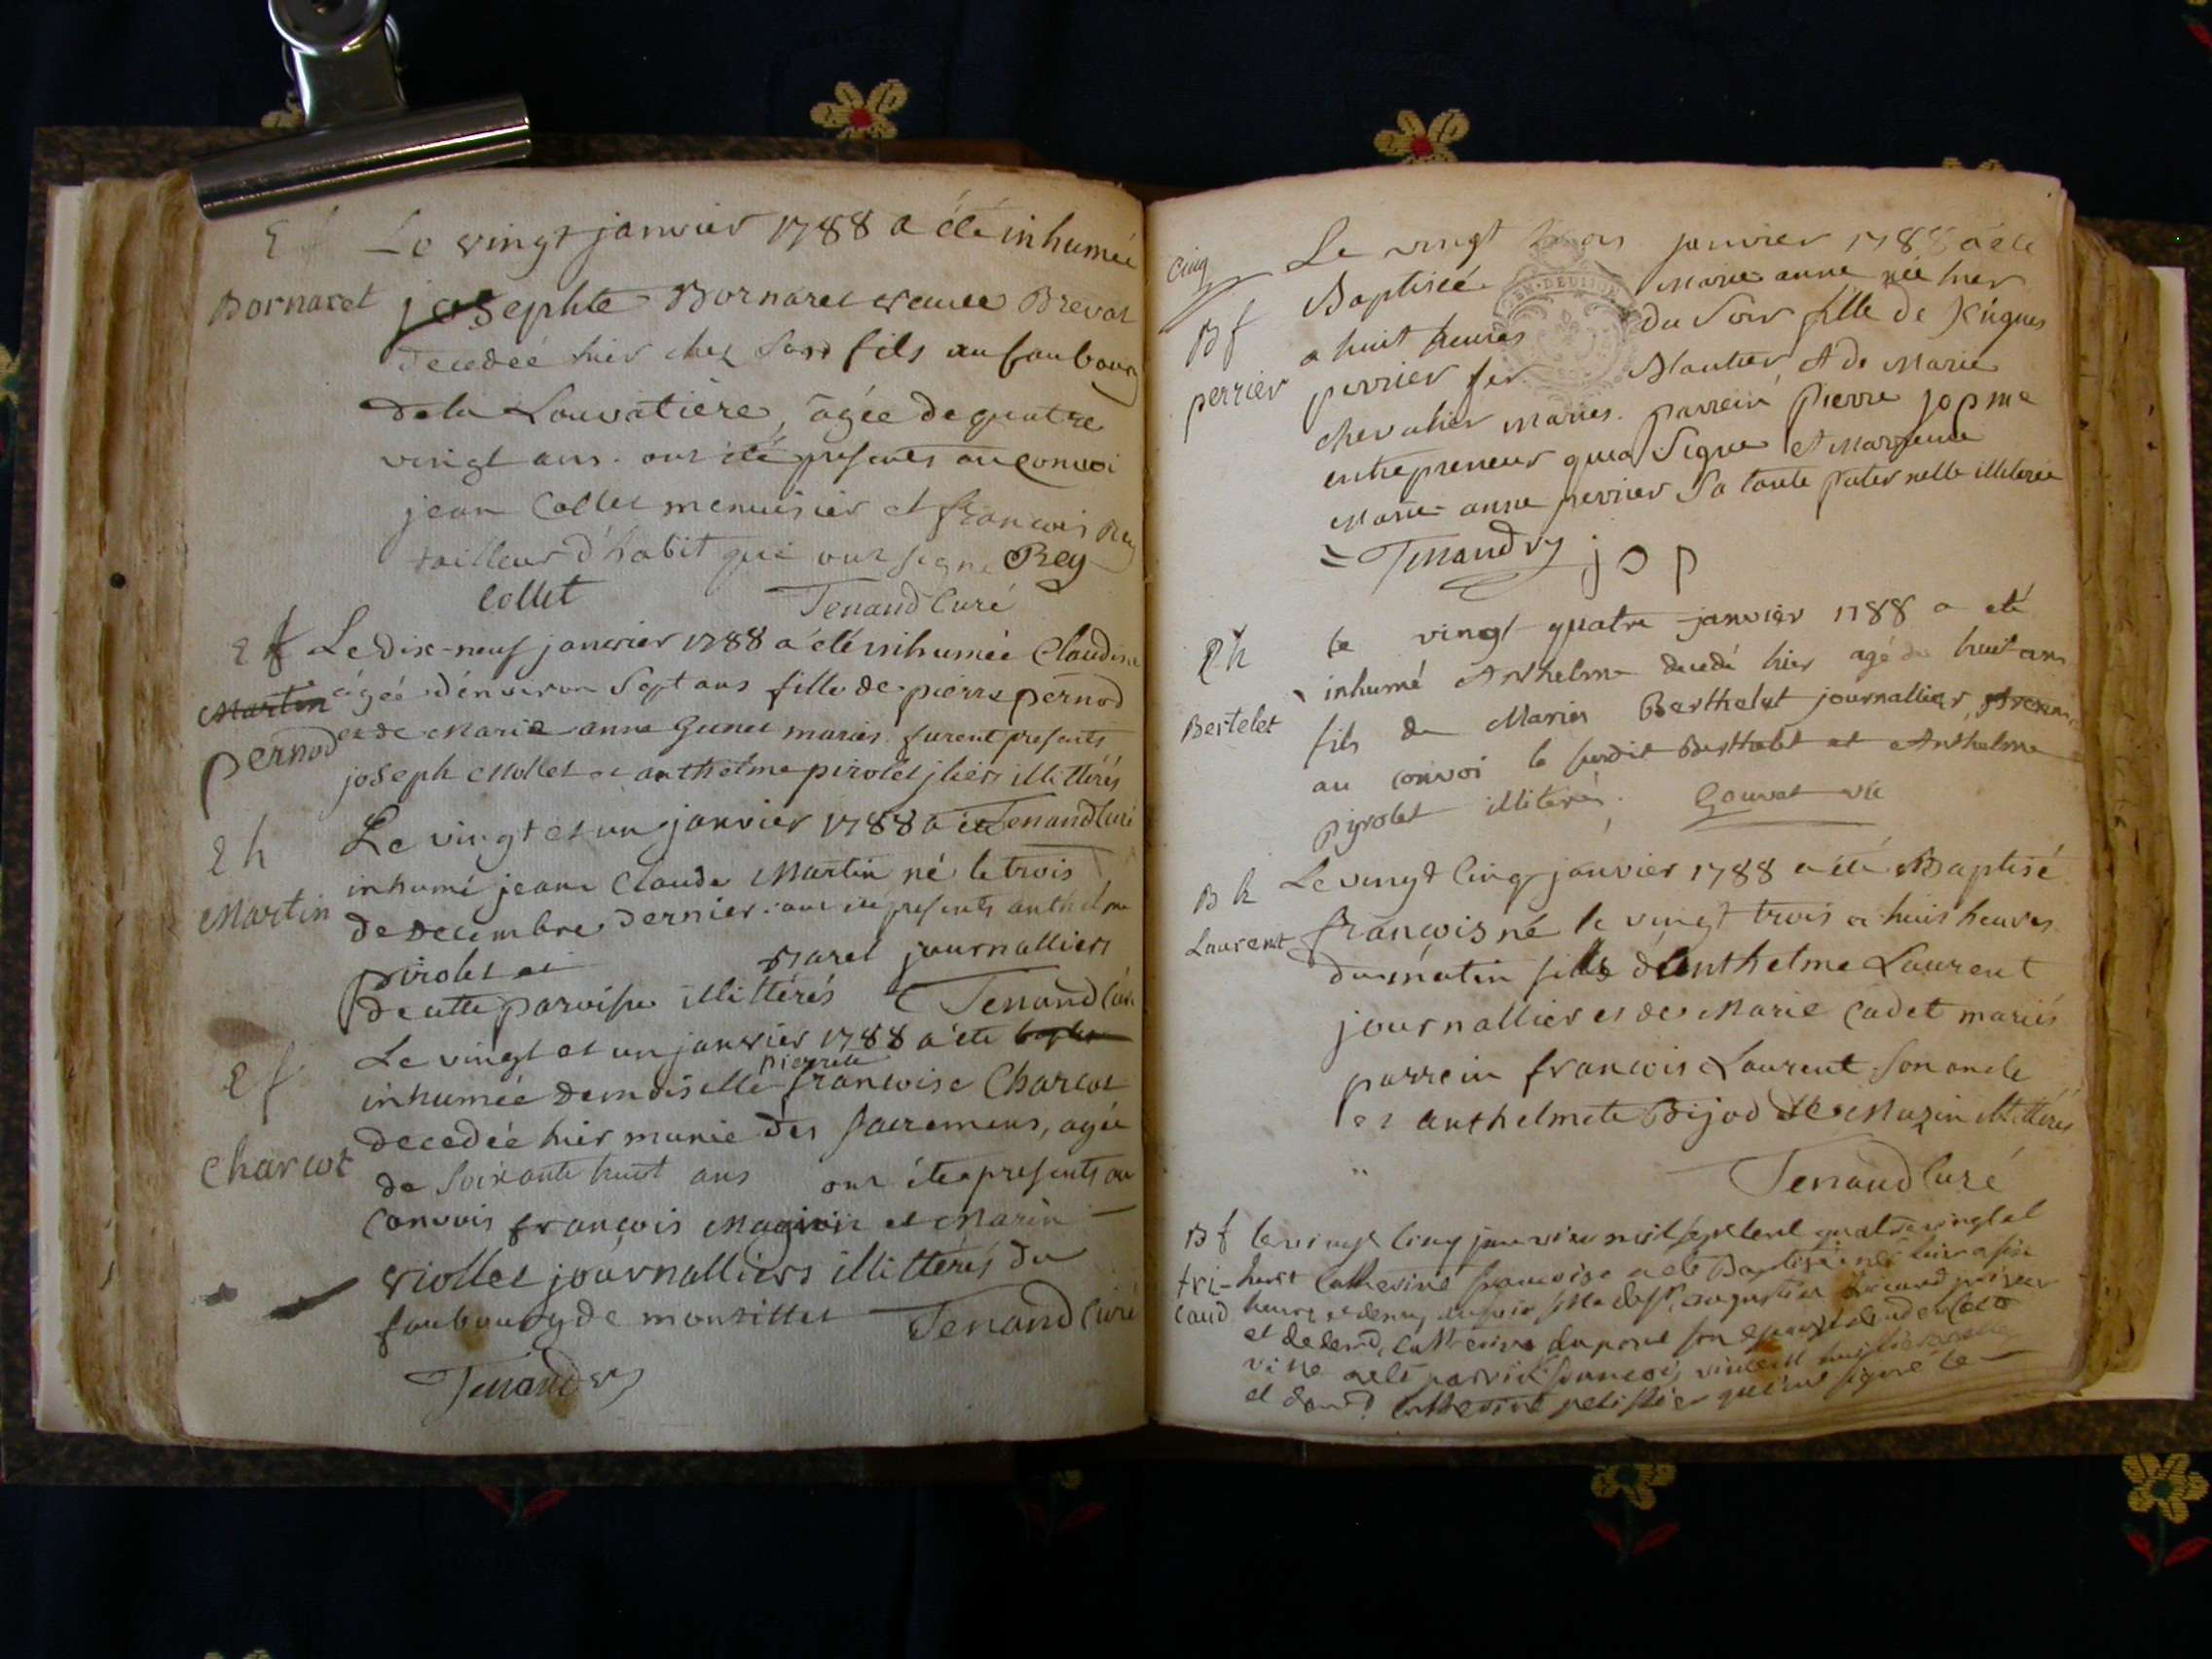 Le vingt janvier 1788 a été inhumée
Bornaret josephte Bornaret veuve Brevat
decedée hier chez son fils au faubourg
de la Louvatière, agée de quatre
vingt ans. ont été presents au convoi
jean Collet menuisier et francois Rey
tailleur d'habit qui ont signé Rey
Collet Tenand Curé
2 f Le dix-neuf janvier 1788 a été inhumée Claudine
Martin agée d'environ Sept ans fille de pierre pernod
pernod et de Marie anne Gunet mariés. furent presents
joseph Mollet et anthelme pirolet jliers illittérés
2 h Le vingt et un janvier 1788 a été Tenand Curé
inhumé jean Claude Martin né le trois
Martin de decembre dernier. ont été presents anthelme
pirolet et Maret journalliers
de cette paroisse illittérés Tenand Curé
Le vingt et un janvier 1788 a été
pierrete
2 f inhumée demoiselle francoise Charcot
decedée hier munie des sacremens, agée
Charcot de soixante huit ans ont été presents au
convois françois Magnin et Marin
Viollet journalliers illittérés du
faubourg de montillet Tenand Curé
Tenand
cinq Le vingt trois janvier 1788 a été
Baptisée Marie anne née hier
B f a huit heures du Soir fille de
GEN. DE DIJON
perrier perrier et de Marie
chevalier mariés. parrein Pierre jop me
entrepreneur qui a Signé et Marreine
Marie-anne perrier Sa tante paternelle illiterée
= Tenand jop
2 h le vingt quatre janvier 1788 a été
inhumé Anthelme decedé hier agé de huit ans
Bertelet fils de Marin Berthelet journallier
au convoi le susdit Berthelet et Anthelme
Pyrolet illiterés. Gouvat vic
B h Le vingt Cinq janvier 1788 a été Baptisé
Laurent françois né le vingt trois a huit heures
du matin fils d'Anthelme Laurent
journallier et de Marie Cadet mariés
parrein francois Laurent son oncle
et anthelmete Bijod de Mazin illittérés
Tenand Curé
B f le vingt cinq janvier mil sept cent quatre vingt et
tri- huit Catherine francoise a été Baptisée née hier a six
caud heures et demy du soir fille de Sr. augustin tricaud
et de demd. Catherine dupont son epouse
a été parrein francois vincent huissier
et demd. Catherine pelissier qui ont signé